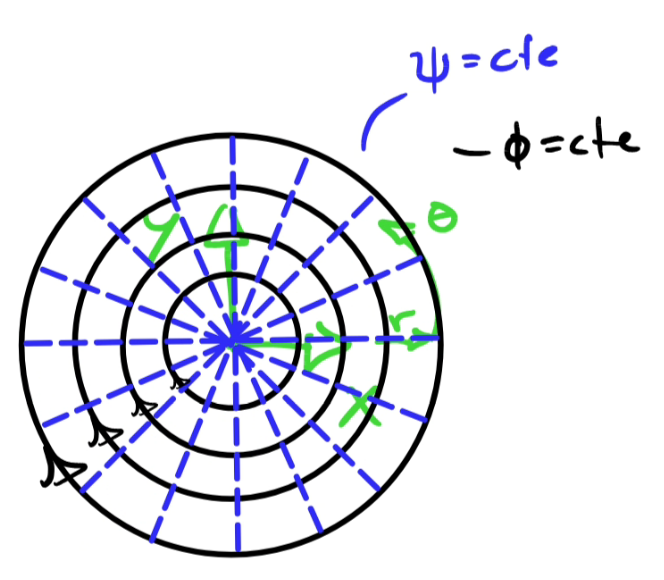 ψ = cte
— ϕ = cte
θ
y
r
x